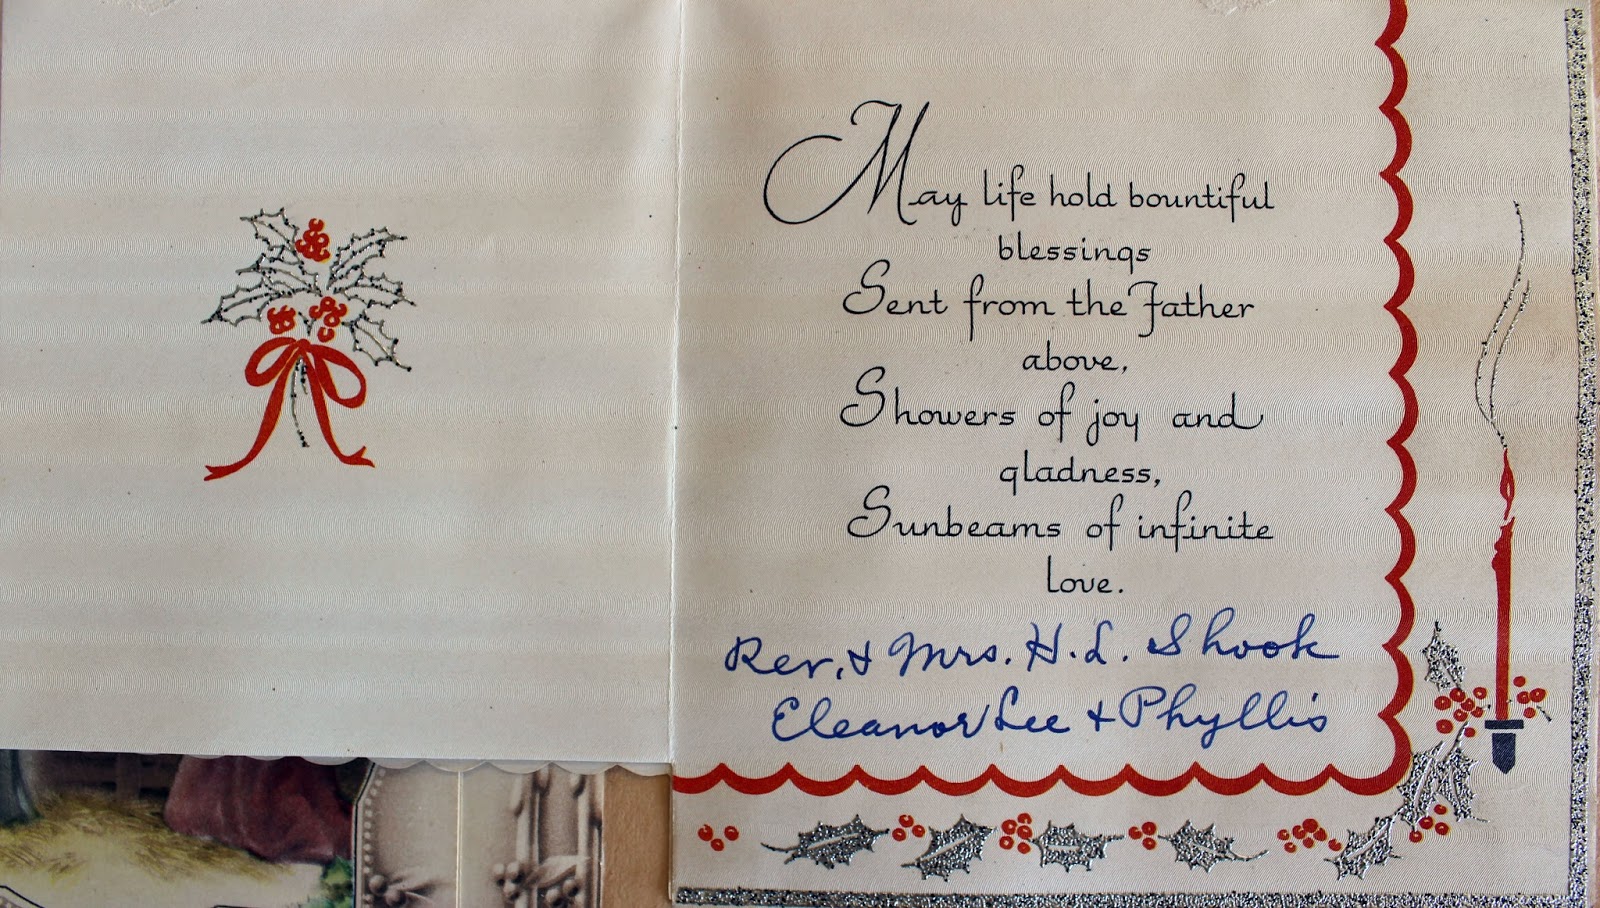 May life hold bountiful
blessings
Sent from the Father
above,
Showers of joy and
gladness,
Sunbeams of infinite
love.
Rev. & Mrs. H. L. Shook
Eleanor Lee & Phyllis